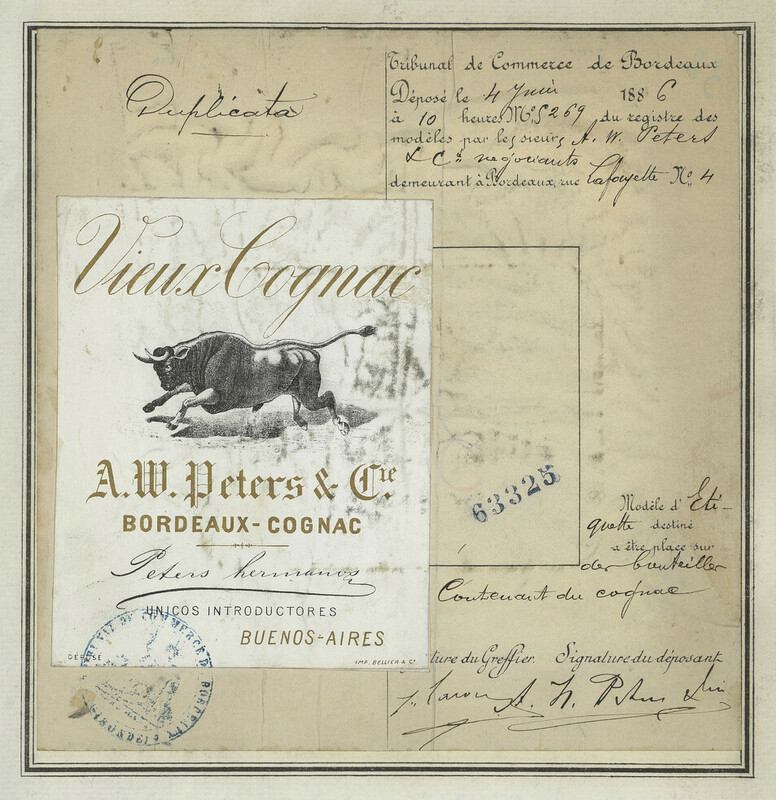 Duplicata
Tribunal de Commerce de Bordeaux
Déposé le 4 Juin 1886
à 10 heures Nº 5269 du registre des
modèles par les sieurs A. W. Peters
& Cie négociants
demeurant à Bordeaux, rue Lafayette Nº 4
Vieux Cognac
A.W. Peters & Cie.
BORDEAUX-COGNAC
Peters hermanos
UNICOS INTRODUCTORES
BUENOS-AIRES
DÉPOSÉ
IMP. BELLIER & Cie
63325
Modèle d'Eti-
quette destiné
a être place sur
des bouteilles
Contenant du cognac
ture du Greffier. Signature du déposant
A. W. Peters
TRIBUNAL DE COMMERCE DE BORDEAUX